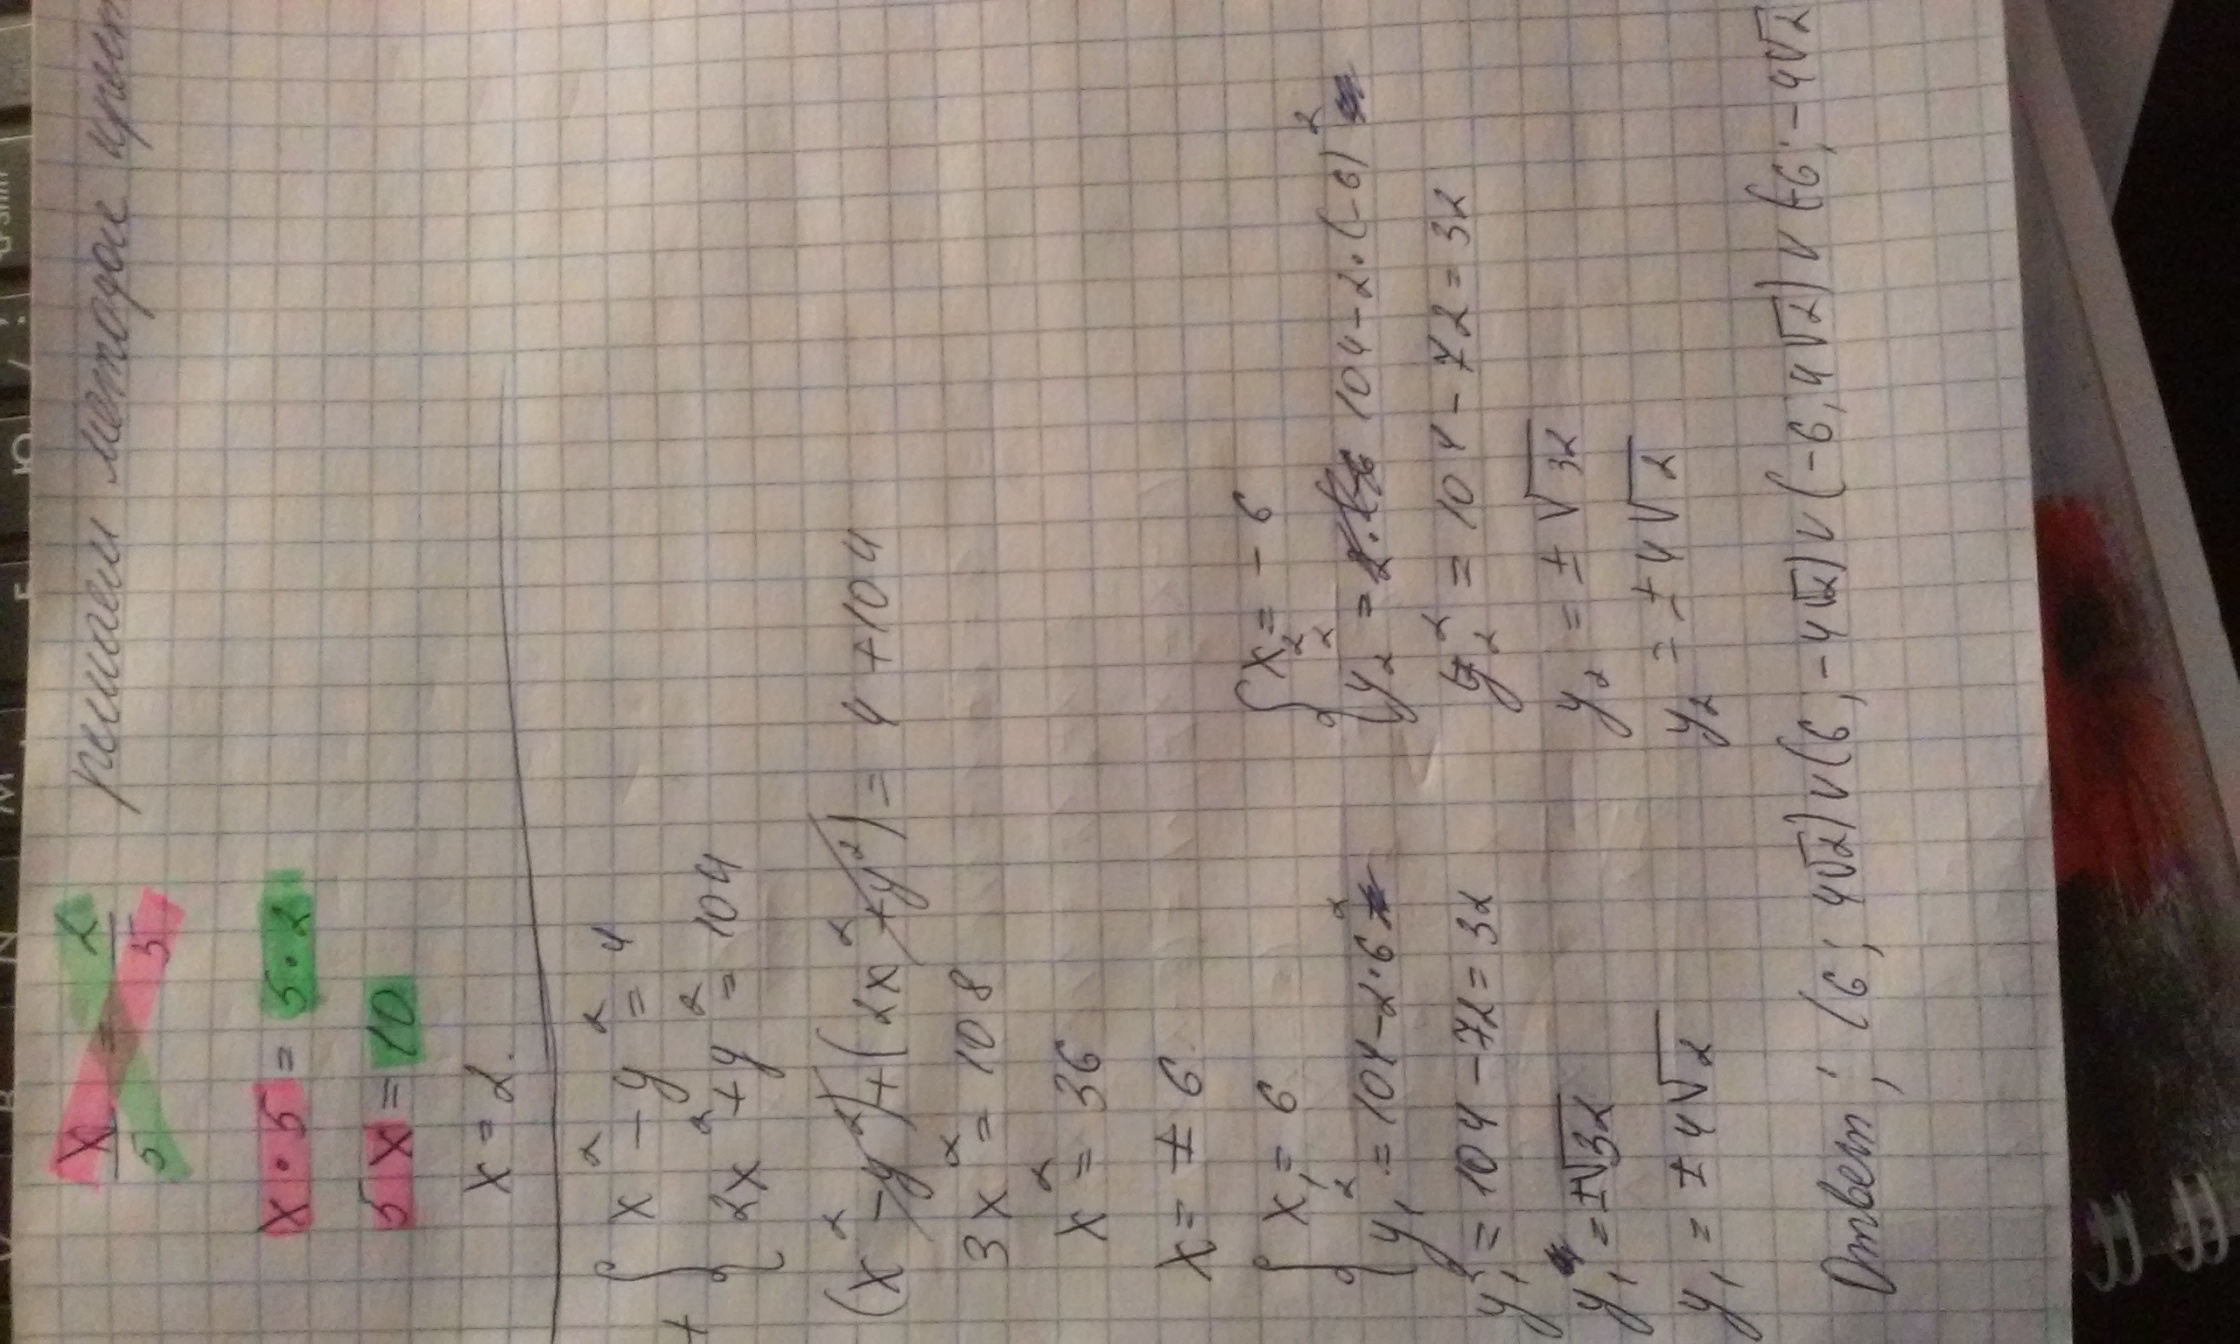 x/5 = 2/5 решаем методом крест
x · 5 = 5 · 2
5x = 10
x = 2.
+ { x² - y² = 4
2x² + y² = 104
(x² - y²) + (2x² + y²) = 4 + 104
3x² = 108
x² = 36
x = ± 6
{ x₁ = 6
y₁² = 104 - 2·6²
y₁² = 104 - 72 = 32
y₁ = ±√32
y₁ = ± 4√2
{ x₂ = - 6
y₂² = 104 - 2·(-6)²
y₂² = 104 - 72 = 32
y₂ = ± √32
y₂ = ± 4√2
Ответ; (6; 4√2) v (6; -4√2) v (-6; 4√2) v (-6; -4√2